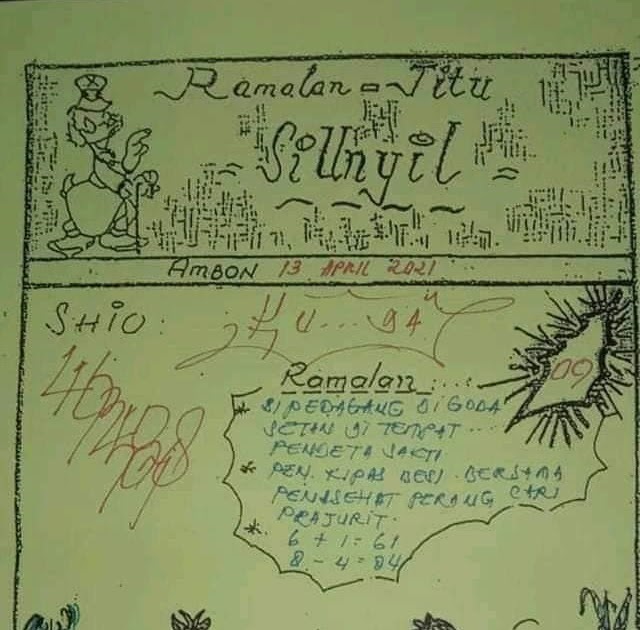 Ramalan = Jitu
= Si Unyil =
AMBON 13 APRIL 2021
SHIO :
09
Ramalan ....
* SI PEDAGANG DI GODA
SETAN DI TEMPAT ...
PENDETA SAKTI
* PEN. KIPAS BESI BERSAMA
PENASEHAT PERANG CARI
PRAJURIT.
*
6 + 1 = 61
8 - 4 = 84